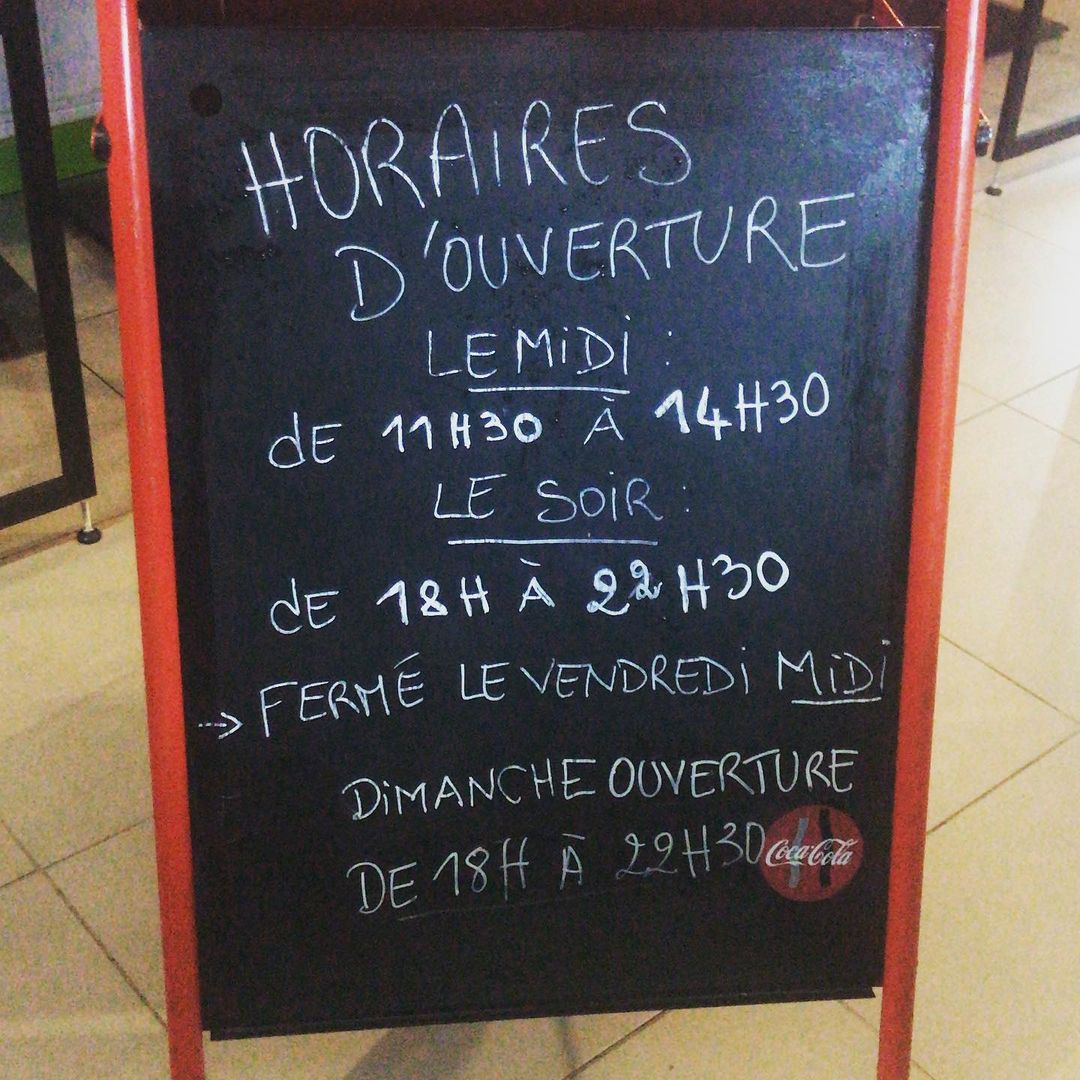 HORAIRES
D'OUVERTURE
LE MIDI :
dE 11H30 À 14H30
LE SOIR :
dE 18H À 22H30
→ FERMÉ LE VENDREDI MIDI
DIMANCHE OUVERTURE
DE 18H À 22H30
Coca-Cola